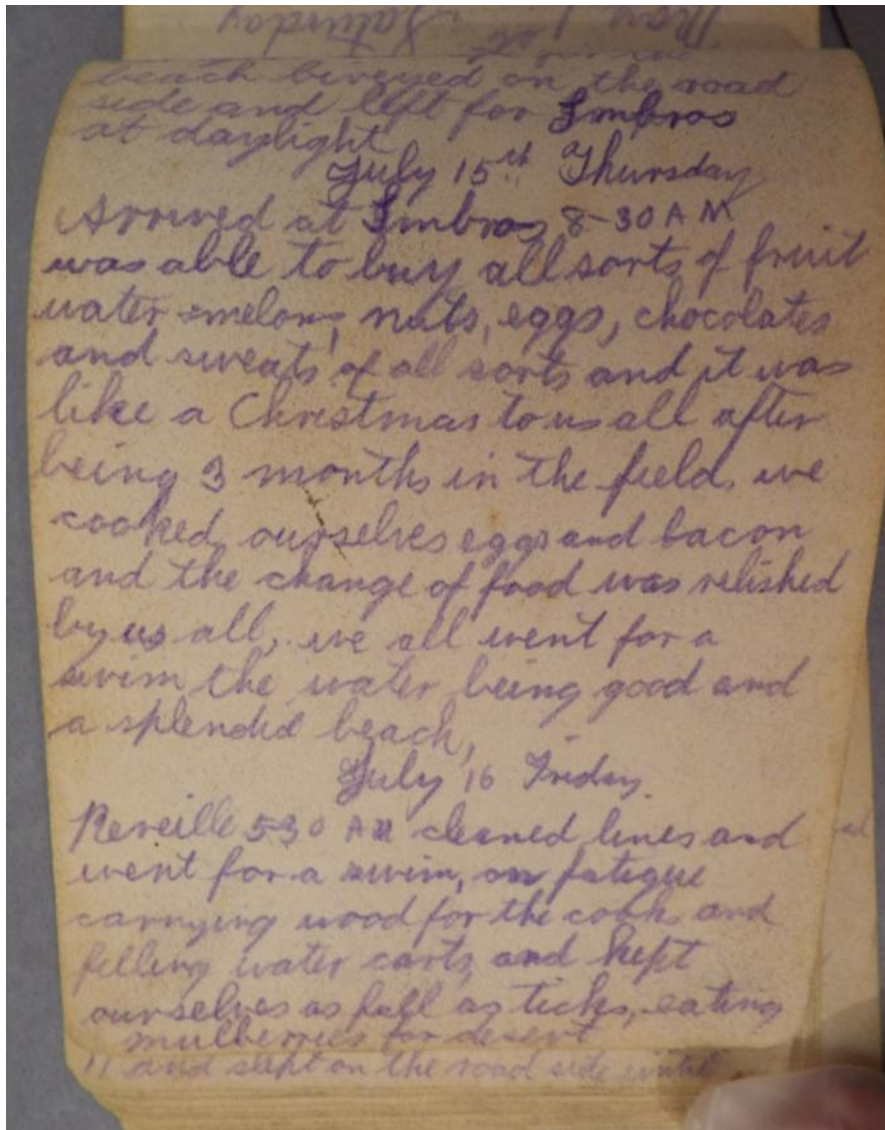 May 1st Saturday
beach biveyed on the road
side and left for Imbros
at daylight
July 15th Thursday
Arrived at Imbros 8-30 AM
was able to buy all sorts of fruit
water-melons, nuts, eggs, chocolates
and sweats of all sorts and it was
like a Christmas to us all after
being 3 months in the field, we
cooked ourselves eggs and bacon
and the change of food was relished
by us all, we all went for a
swim the water being good and
a splendid beach,
July 16 Friday.
Reveille 530 AM cleaned lines and
went for a swim, on fatigue
carrying wood for the cooks and
filling water carts, and kept
ourselves as full as ticks, eating
mulberries for desert
11 and slept on the road side until